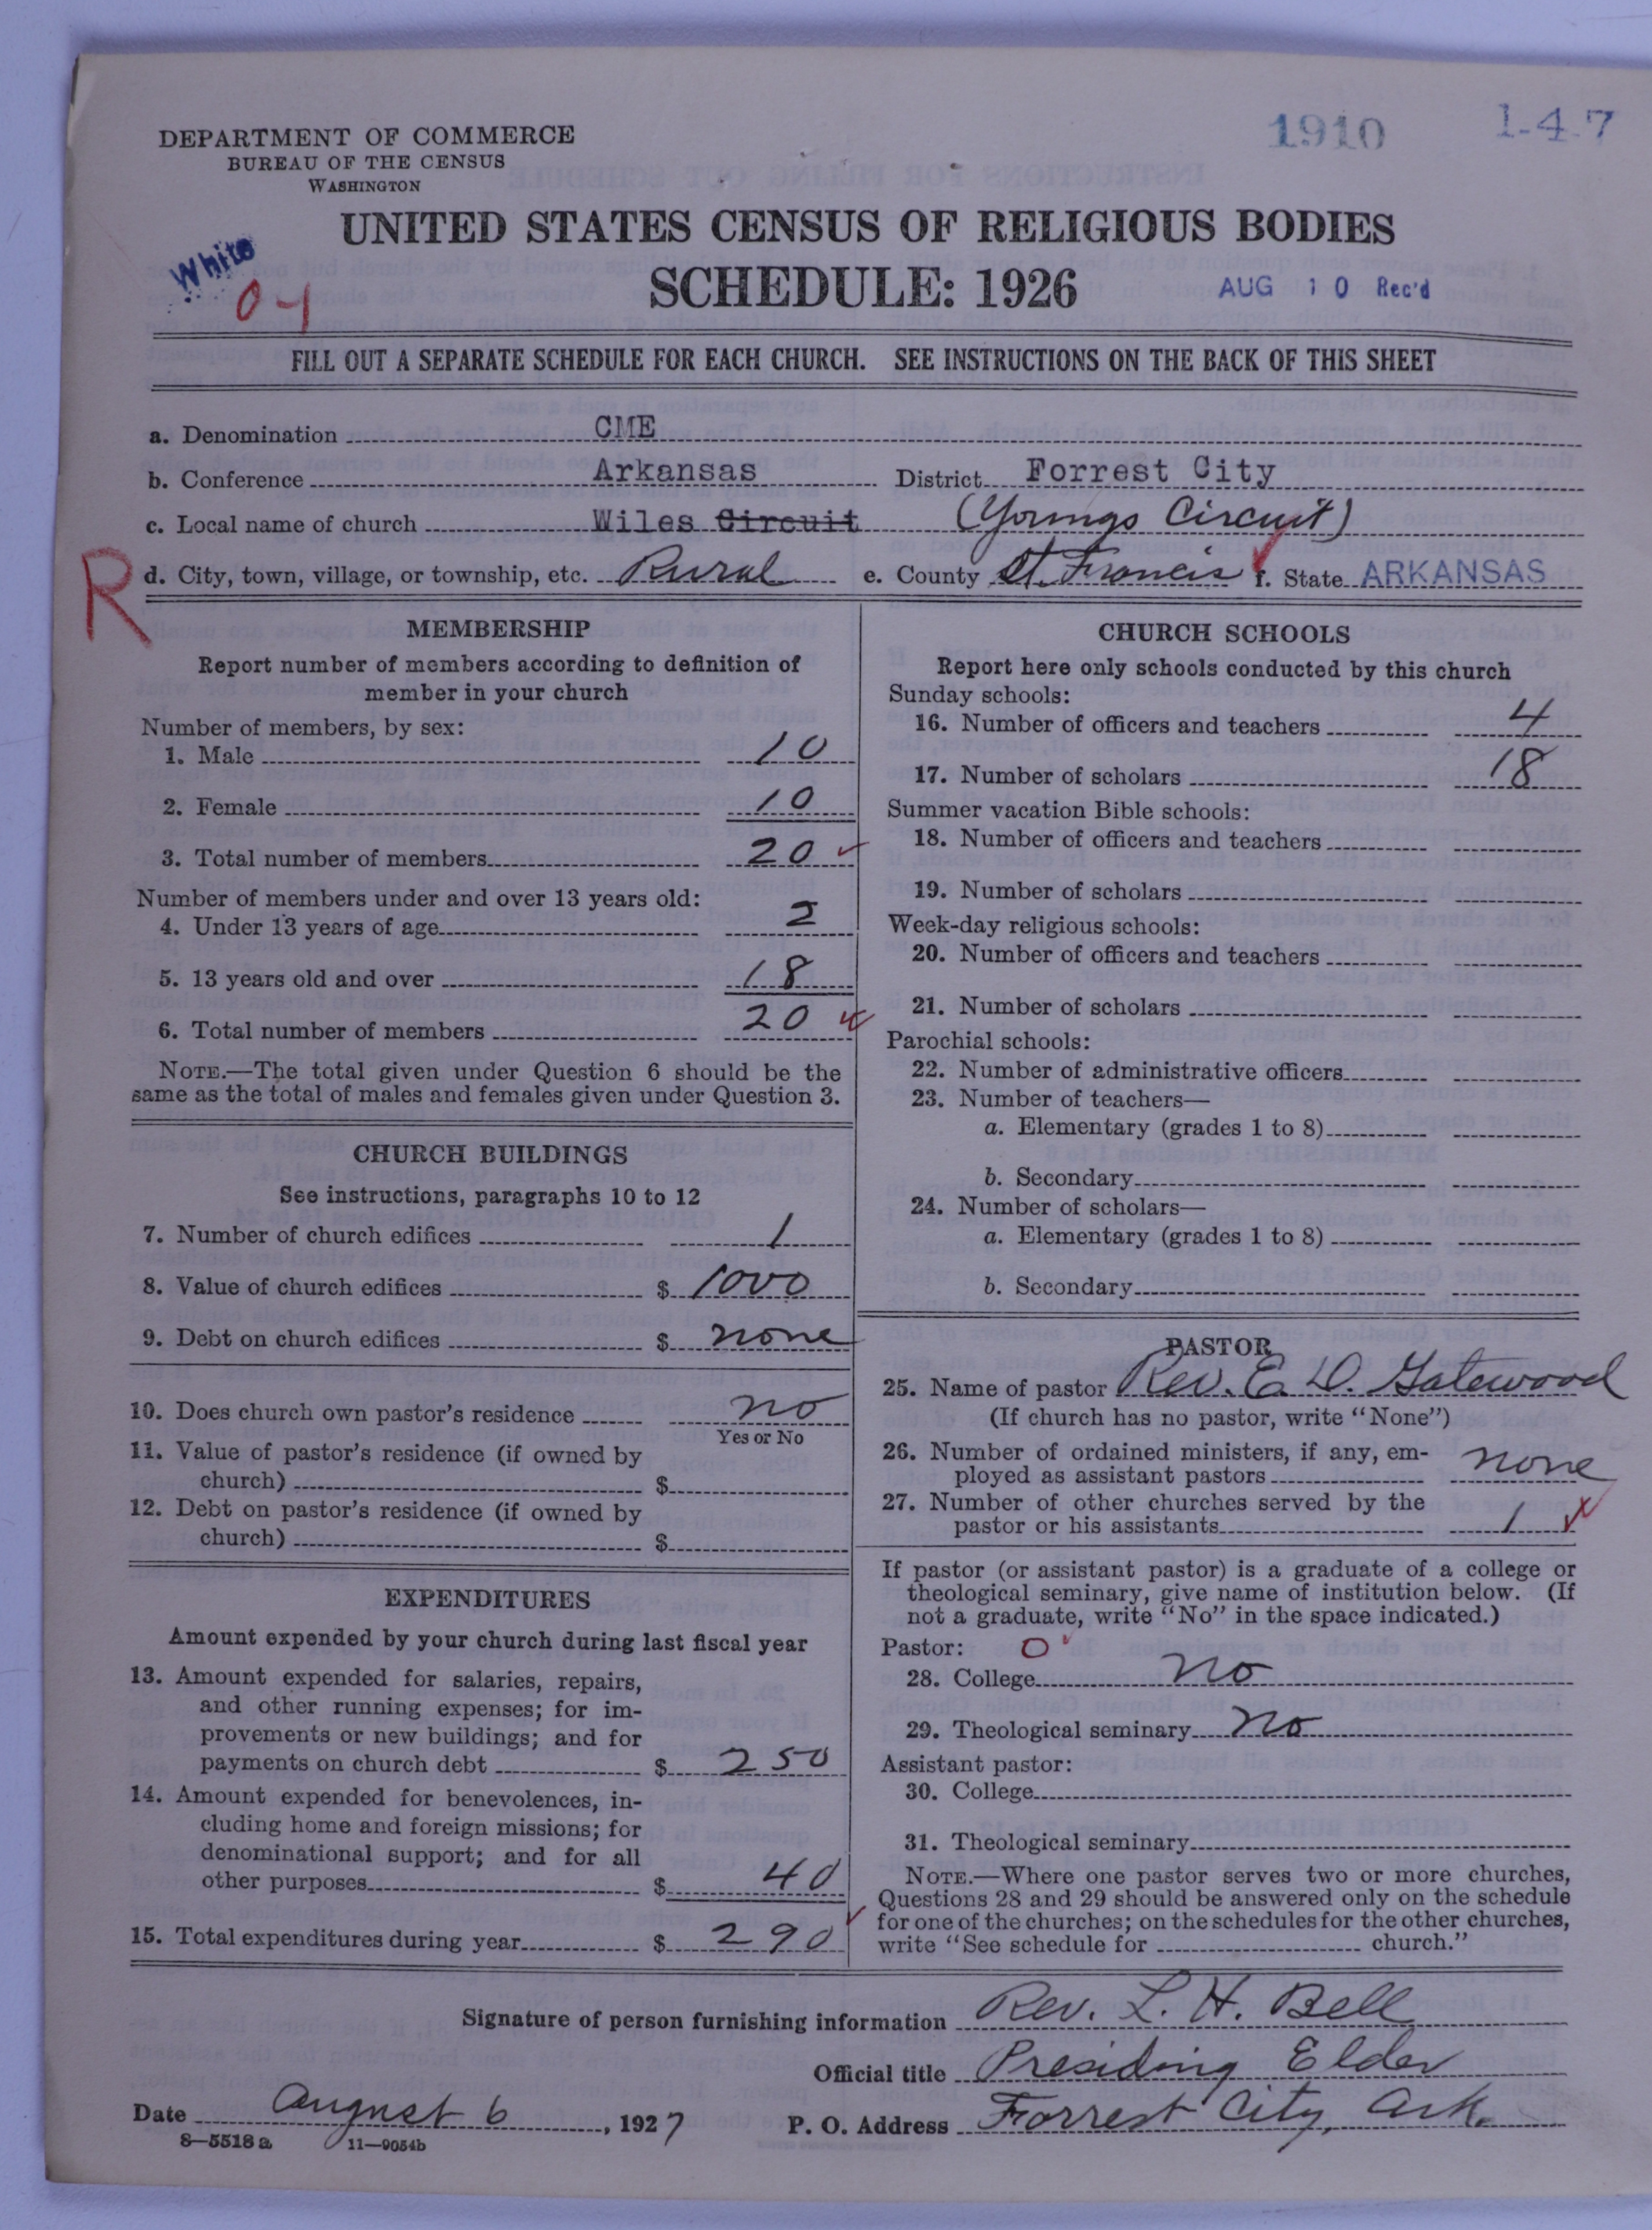 DEPARTMENT OF COMMERCE
BUREAU OF THE CENSUS
WASHINGTON
1910
1-4-7
UNITED STATES CENSUS OF RELIGIOUS BODIES
White
04
SCHEDULE: 1926
AUG 10 Rec'd
FILL OUT A SEPARATE SCHEDULE FOR EACH CHURCH. SEE INSTRUCTIONS ON THE BACK OF THIS SHEET
a. Denomination CME
b. Conference Arkansas District Forrest City
c. Local name of church Wiles Circuit (Youngs Circuit)
R
d. City, town, village, or township, etc. Rural e. County St. Francis f. State ARKANSAS
MEMBERSHIP
Report number of members according to definition of
member in your church
Number of members, by sex:
1. Male 10
2. Female 10
3. Total number of members 20
Number of members under and over 13 years old:
4. Under 13 years of age 2
5. 13 years old and over 18
6. Total number of members 20
NOTE.—The total given under Question 6 should be the
same as the total of males and females given under Question 3.
CHURCH BUILDINGS
See instructions, paragraphs 10 to 12
7. Number of church edifices 1
8. Value of church edifices $ 1000
9. Debt on church edifices $ none
10. Does church own pastor's residence no
Yes or No
11. Value of pastor's residence (if owned by
church) $
12. Debt on pastor's residence (if owned by
church) $
EXPENDITURES
Amount expended by your church during last fiscal year
13. Amount expended for salaries, repairs,
and other running expenses; for im-
provements or new buildings; and for
payments on church debt $ 250
14. Amount expended for benevolences, in-
cluding home and foreign missions; for
denominational support; and for all
other purposes $ 40
15. Total expenditures during year $ 290
CHURCH SCHOOLS
Report here only schools conducted by this church
Sunday schools:
16. Number of officers and teachers 4
17. Number of scholars 18
Summer vacation Bible schools:
18. Number of officers and teachers
19. Number of scholars
Week-day religious schools:
20. Number of officers and teachers
21. Number of scholars
Parochial schools:
22. Number of administrative officers
23. Number of teachers—
a. Elementary (grades 1 to 8)
b. Secondary
24. Number of scholars—
a. Elementary (grades 1 to 8)
b. Secondary
PASTOR
25. Name of pastor Rev. E. D. Gatewood
(If church has no pastor, write "None")
26. Number of ordained ministers, if any, em-
ployed as assistant pastors none
27. Number of other churches served by the
pastor or his assistants 1
If pastor (or assistant pastor) is a graduate of a college or
theological seminary, give name of institution below. (If
not a graduate, write "No" in the space indicated.)
Pastor: 0
28. College no
29. Theological seminary no
Assistant pastor:
30. College
31. Theological seminary
NOTE.—Where one pastor serves two or more churches,
Questions 28 and 29 should be answered only on the schedule
for one of the churches; on the schedules for the other churches,
write "See schedule for church."
Signature of person furnishing information Rev. L. H. Bell
Official title Presiding Elder
Date August 6, 1927 P. O. Address Forrest City, Ark.
8—5518 a 11—9054b